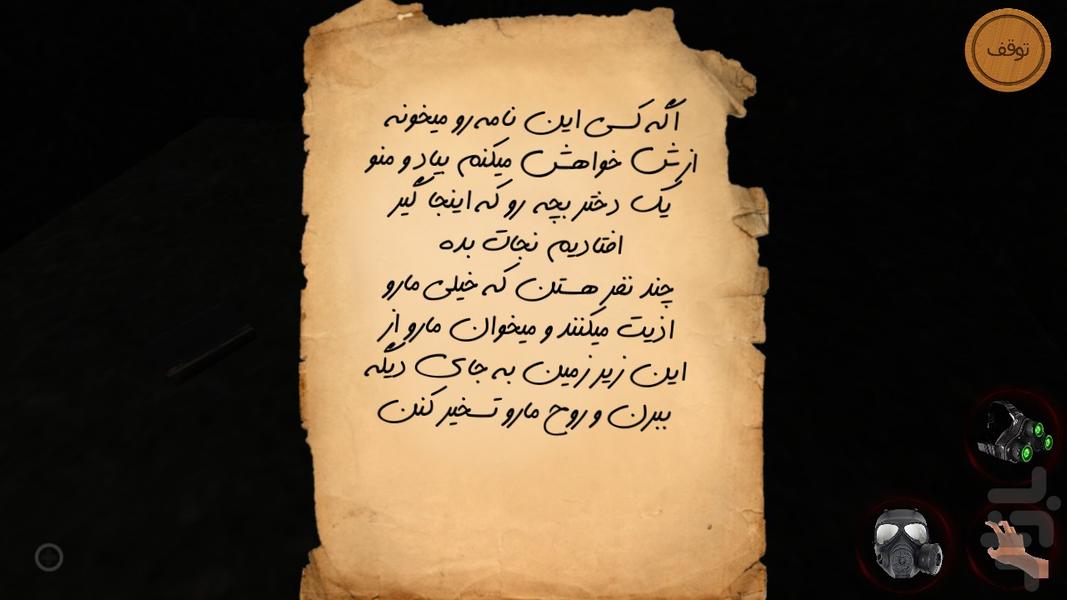 توقف
اگه کسی این نامه رو میخونه
ازش خواهش میکنم بیاد و منو
یک دختر بچه رو که اینجا گیر
افتادیم نجات بده
چند نفر هستن که خیلی مارو
اذیت میکنند و میخوان مارو از
این زیر زمین به جای دیگه
ببرن و روح مارو تسخیر کنن
بازار